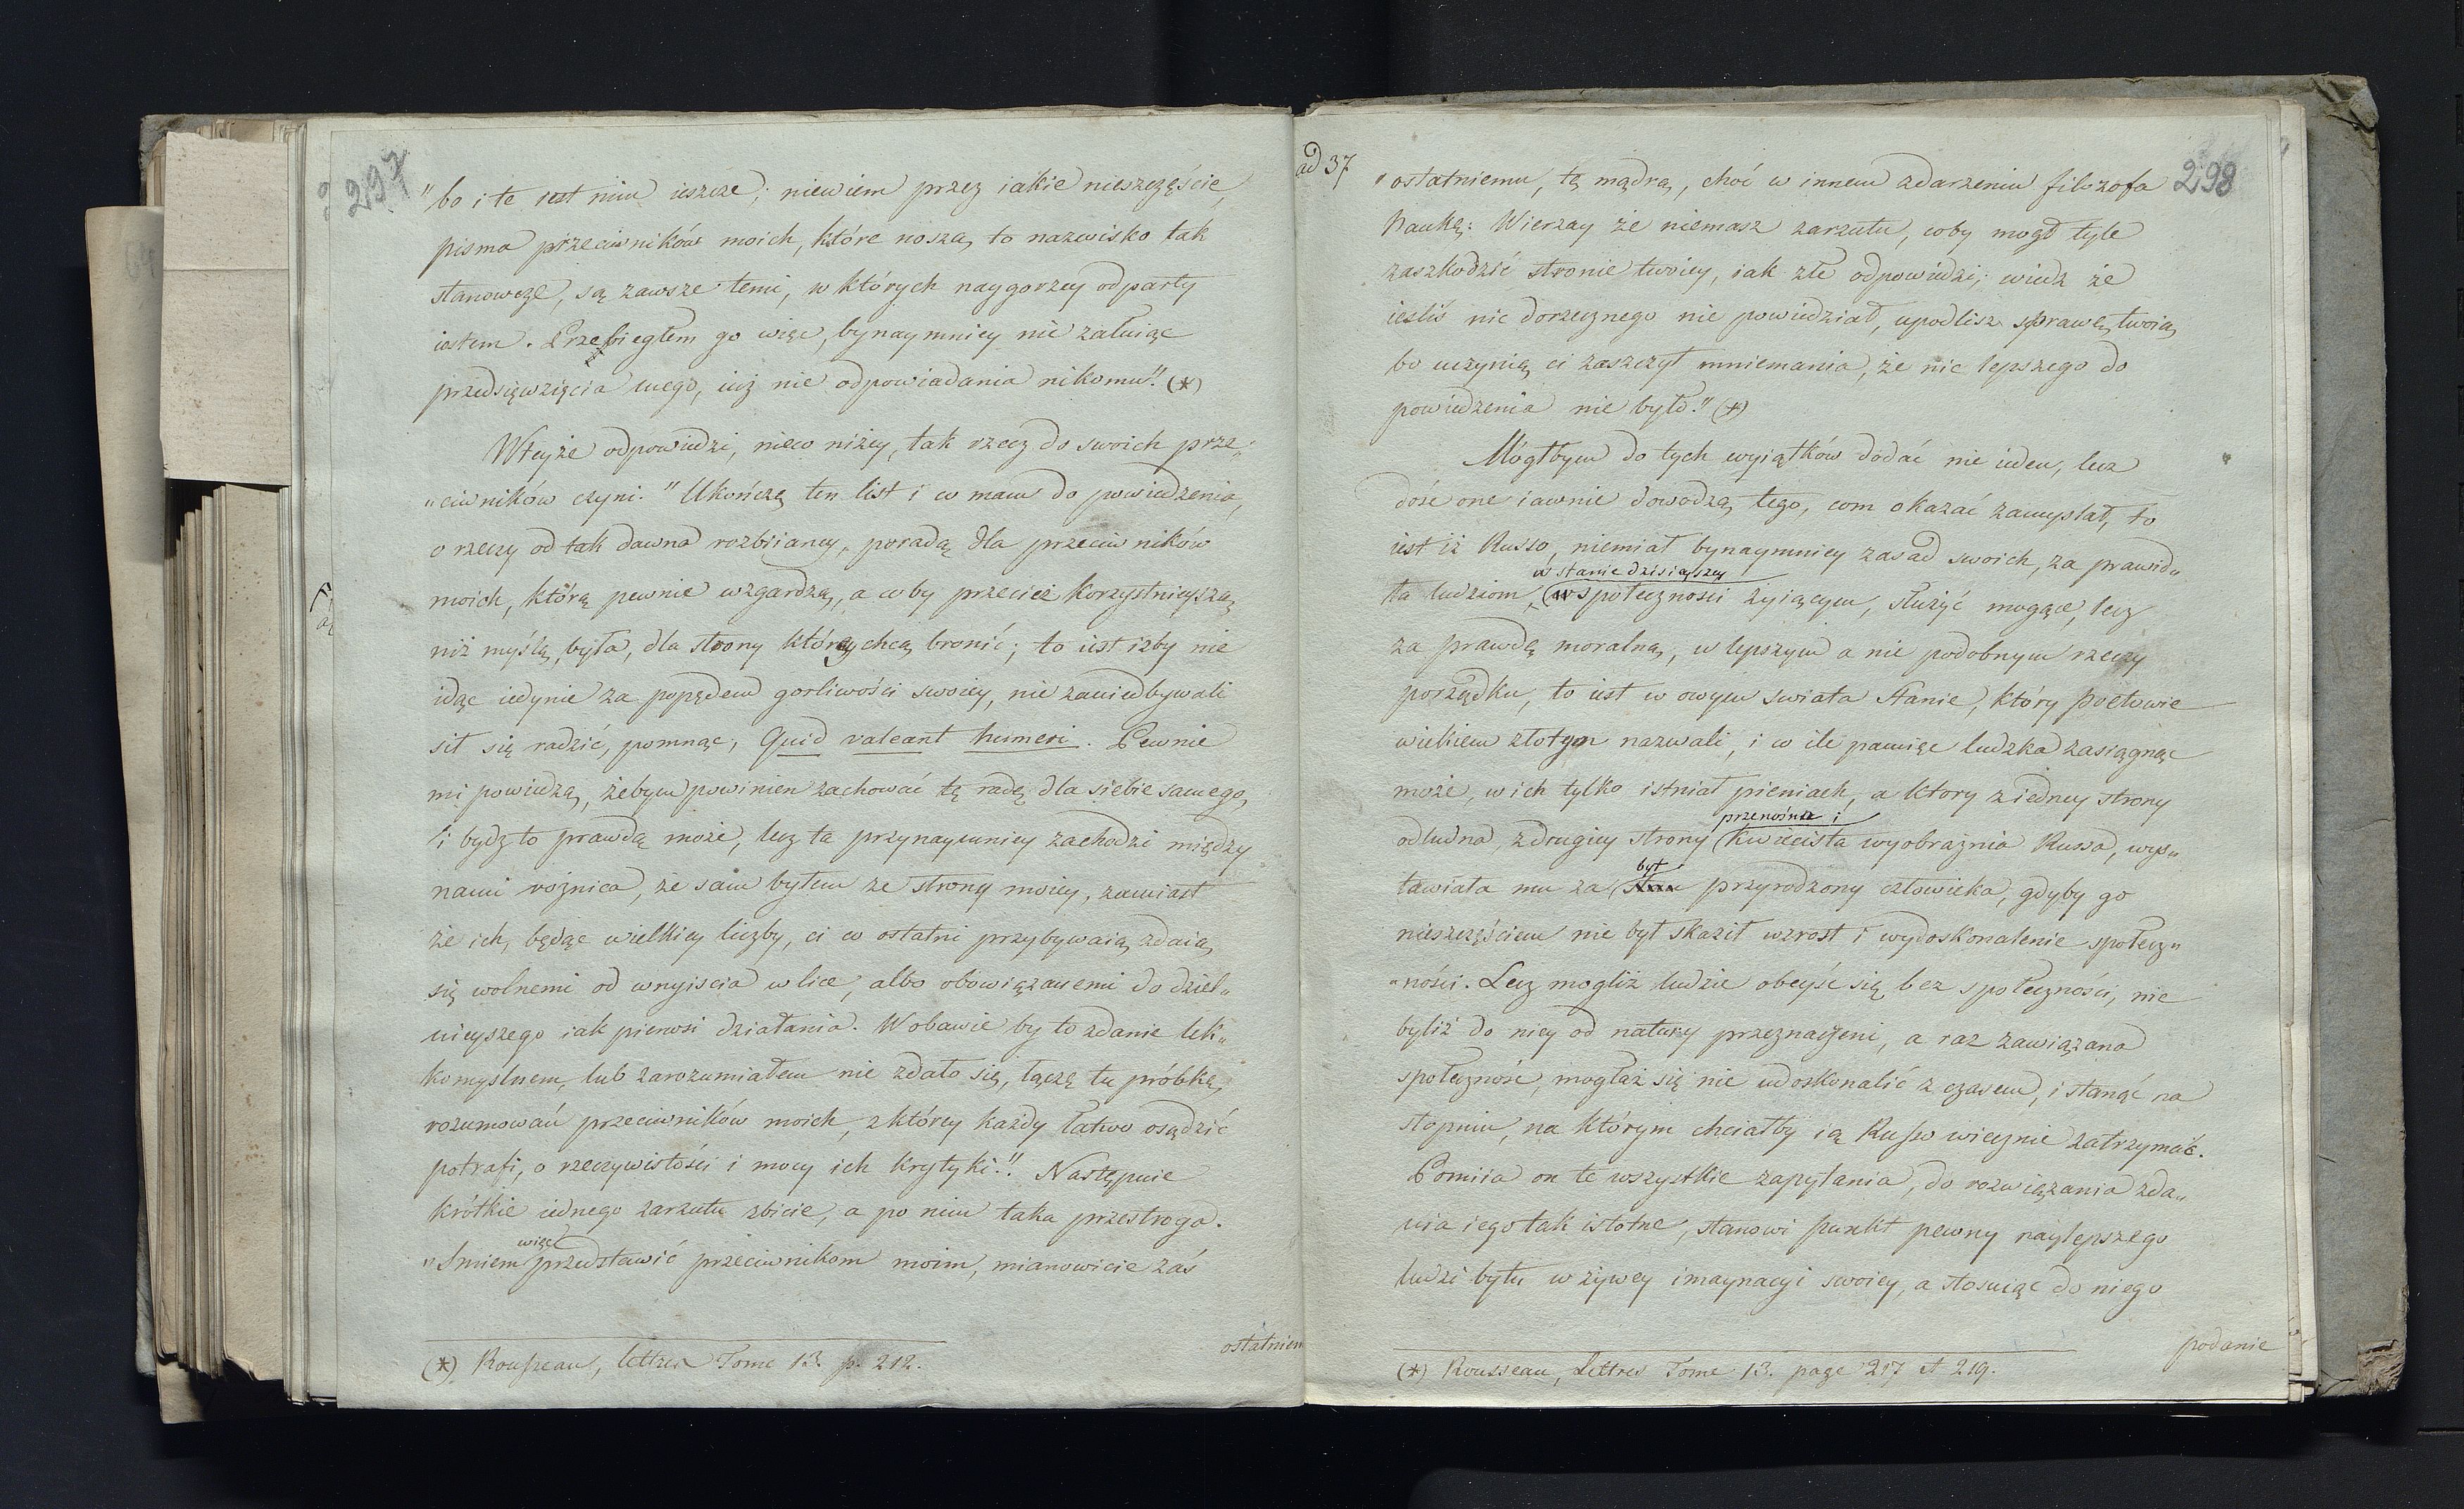 297
"bo i te iest nim ieszcze; niewiem przez iakie nieszczęście,
pisma przeciwników moich, które noszą to nazwisko tak
stanowcze, są zawsze temi, w których naygorzey odparty
iestem. Przebiegłem go więc, bynaymniey nie załuiąc
przedsięwzięcia mego, iuż nie odpowiadania nikomu". (*)
Wteyże odpowiedzi, nieco niżey, tak rzecz do swoich prze„
„ciwników czyni. "Ukończę ten list i co mam do powiedzenia,
o rzeczy od tak dawna rozbiraney, poradą dla przeciwników
moich, którą pewnie wzgardzą, a coby przecież korzystnieyszą,
niż myślą, była, dla strony którey chcą bronić; to iest iżby nie
idąc iedynie za popędem gorliwości swoiey, nie zaniedbywali
sił się radzić, pomnąc, Quid valeant humeri. Pewnie
mi powiedzą, żebym powinien zachować tę radę dla siebie samego,
i bydz to prawdą może, lecz ta przynaymniey zachodzi między
nami rożnica, że sam byłem ze strony moiey, zamiast
że ich, będąc wielkiey liczby, ci co ostatni przybywaią, zdaią
się wolnemi od wnyiscia w lice, albo obowiązanemi do dziel„
nieyszego iak pierwsi działania. W obawie by to zdanie lek„
komyslnem, lub zarozumiałem nie zdało się, łączę tu próbkę,
rozumowań przeciwników moich, z którey każdy łatwo osądzić
potrafi, o rzeczywistości i mocy ich krytyki." Następnie
krótkie iednego zarzutu zbicie, a po nim taka przestroga.
więc
"Smiem przedstawić przeciwnikom moim, mianowicie zaś
ostatniem
(*) Rousseau, lettres Tome 13. p. 212.
ad 37
298
"ostatniemu, tę mądrą, choć w innem zdarzeniu filozofa
naukę: Wierzay że niemasz zarzutu, coby mogł tyle
zaszkodzić stronie twoiey, iak złe odpowiedzi; wiedz że
ieśliś nic dorzecznego nie powiedział, upodlisz sprawę twoią,
bo uczynią ci zaszczyt mniemania, że nic lepszego do
powiedzenia nie było." (*)
Mógłbym do tych wyiątków dodać nie ieden, lecz
dość one iawnie dowodzą tego, com okazać zamyslał, to
iest iż Russo, niemiał bynaymniey zasad swoich, za prawid„
w stanie dzisiayszey
ła ludziom, społeczności żyiącym, służyć mogące, lecz
za prawdę moralną, w lepszym a nie podobnym rzeczy
porządku, to iest w owym swiata stanie, który poetowie
wiekiem złotym nazwali, i w ile pamięc ludzka zasiągnąc
może, w ich tylko istniał pieniach, a ktory z iedney strony
przenośnia i
odludna, z drugiey strony kwiecista wyobraźnia Russa, wys„
byt
tawiała mu za stan przyrodzony człowieka, gdyby go
nieszczęściem nie był skaził wzrost i wydoskonalenie społecz„
„ności. Lecz mogliż ludzie obeyść się bez społeczności, nie
byliż do niey od natury przeznaczeni, a raz zawiązana
społeczność, mogłaż się nie udoskonalić z czasem, i stanąć na
stopniu, na którym chciałby ią Russo wiecznie zatrzymać.
Pomiia on te wszystkie zapytania, do rozwiązania zda„
nia iego tak istotne, stanowi punkt pewny naylepszego
ludzi bytu w żywey imaynacyi swoiey, a stosuiąc do niego
podanie
(*) Rousseau, Lettres Tome 13. page 217 et 219.